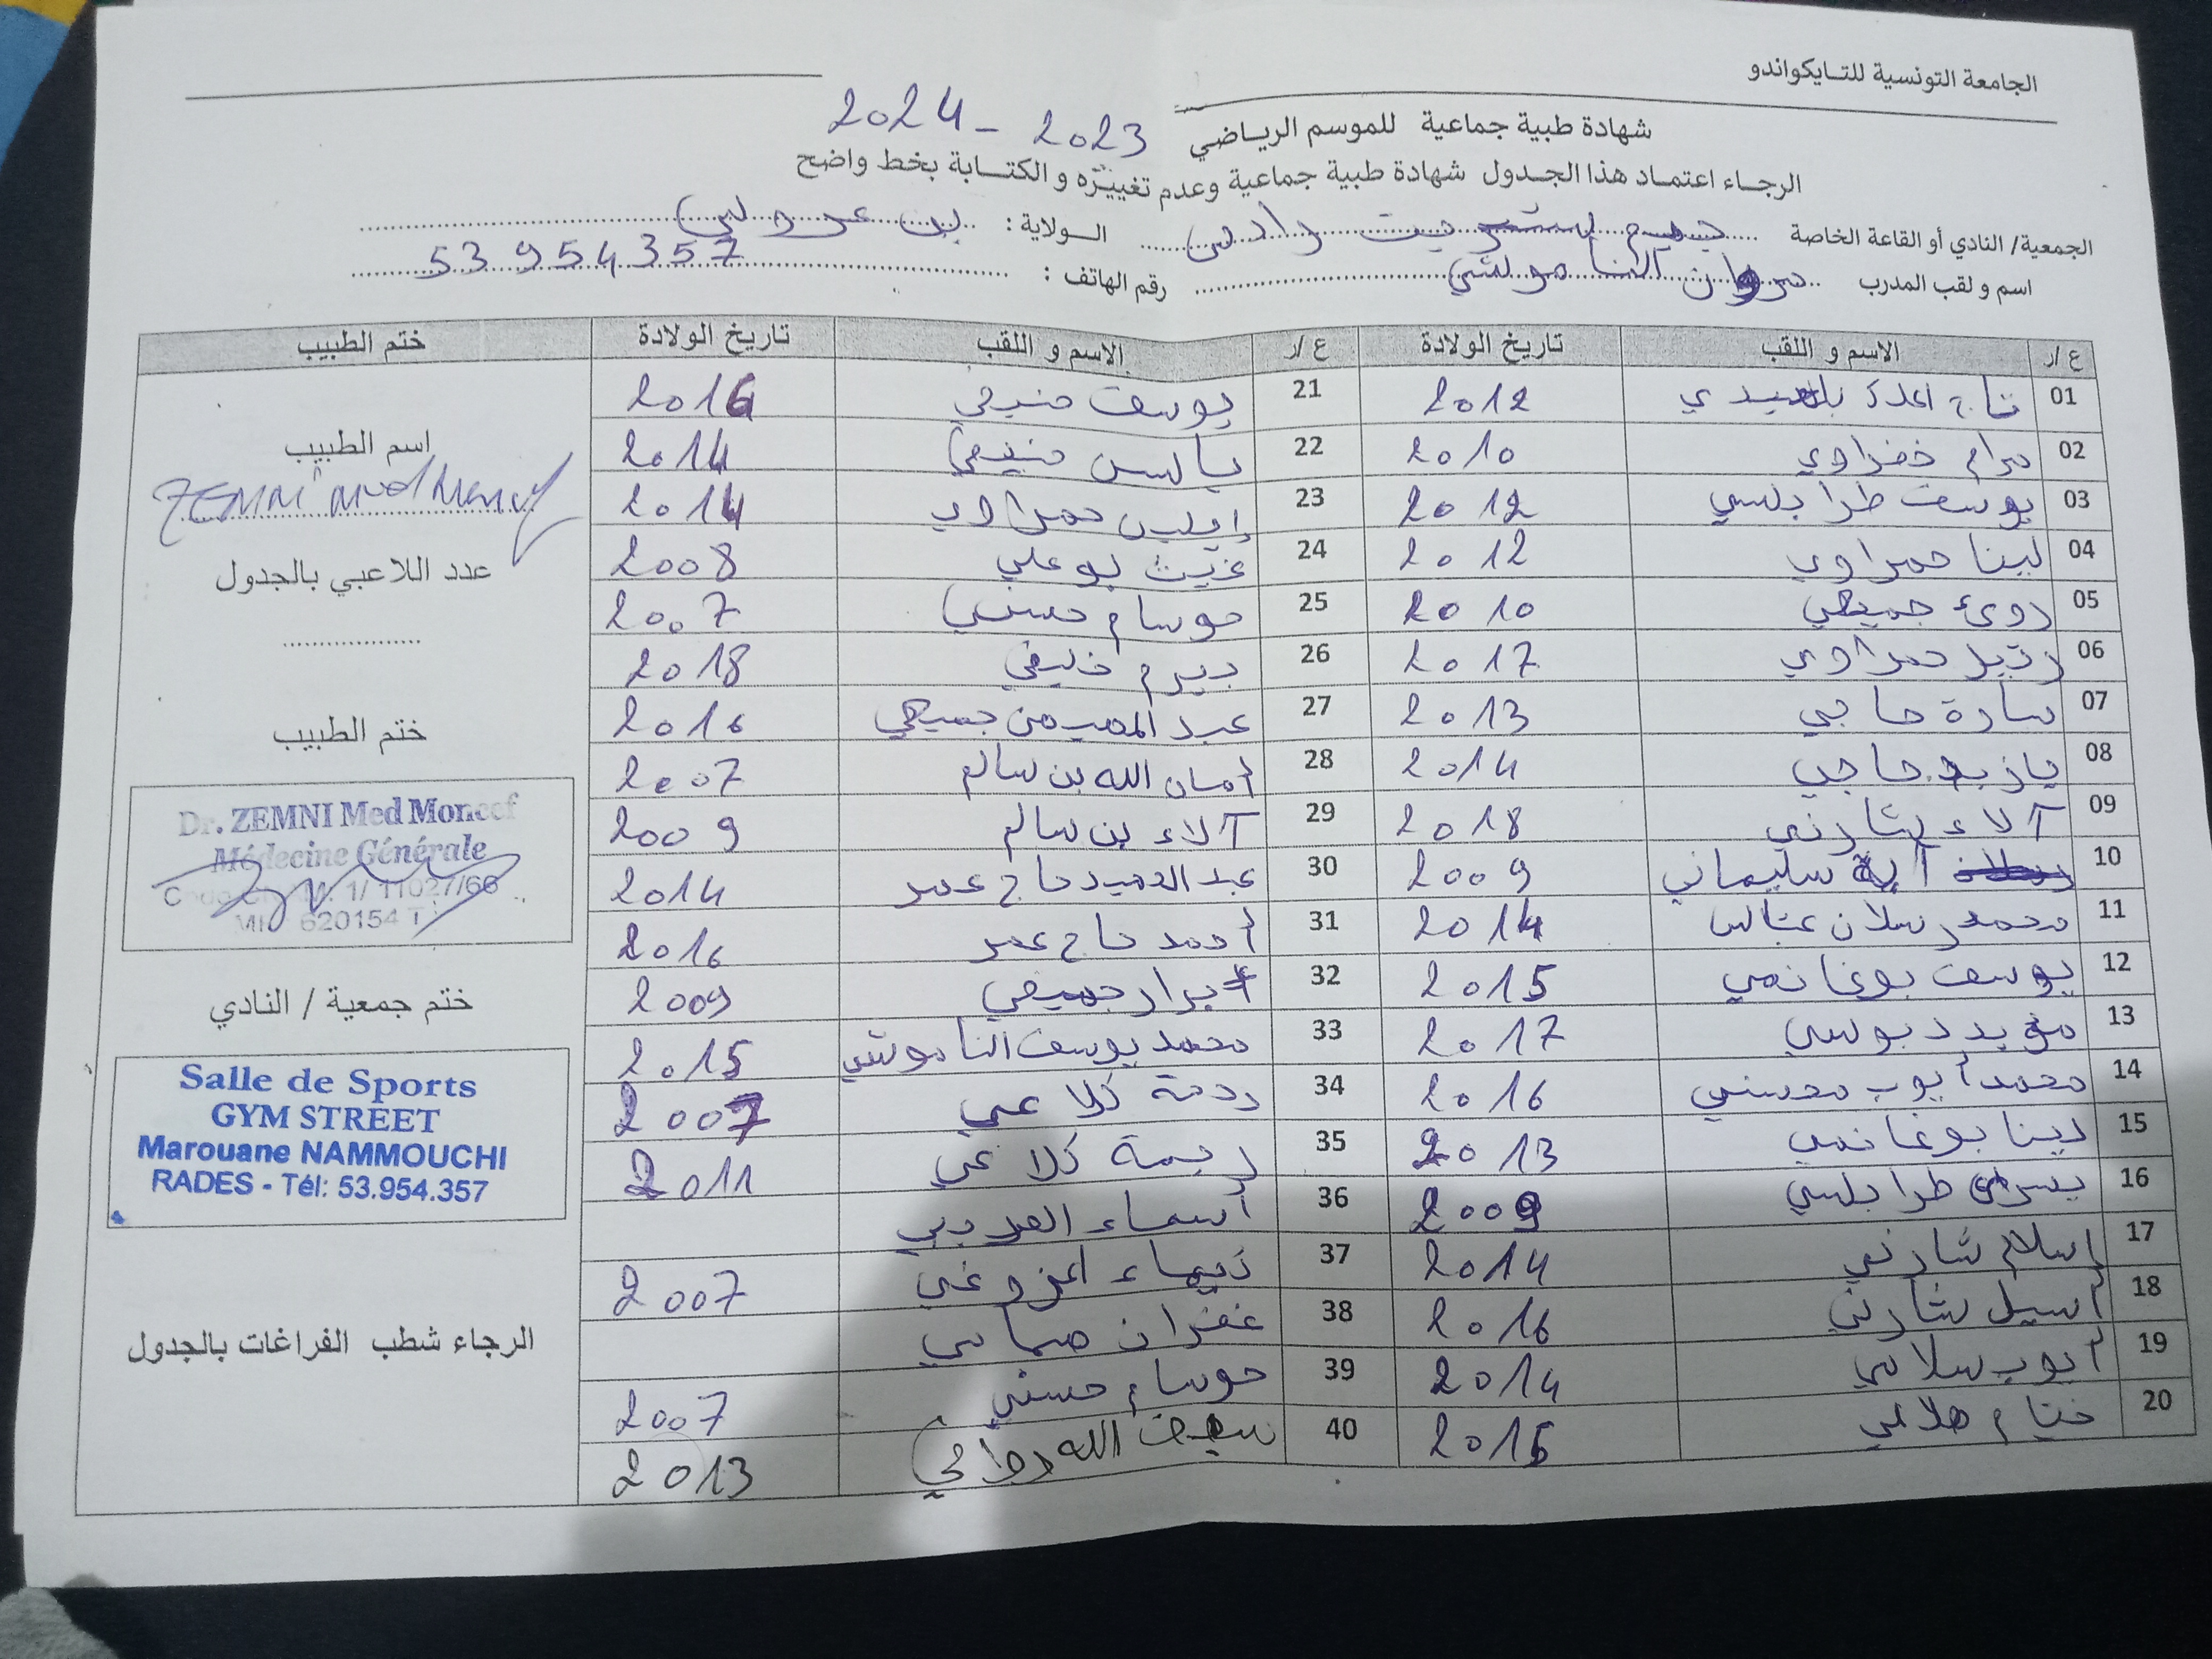 الجامعة التونسية للتايكواندو
شهادة طبية جماعية للموسم الرياضي 2023 - 2024
الرجاء اعتماد هذا الجدول شهادة طبية جماعية وعدم تغييره و الكتابة بخط واضح
الجمعية/ النادي أو القاعة الخاصة جيم ستريت رادس الولاية : بن عروس
اسم و لقب المدرب مروان النا موشي رقم الهاتف : 53 954 357
ع /ر الاسم و اللقب تاريخ الولادة ع /ر الاسم و اللقب تاريخ الولادة ختم الطبيب
01 تاج 2012
02 مرام خضراوي 2010
03 يوسف طرابلسي 2012
04 لينا حمراوي 2012
05 جميعي 2010
06 رتيل حمراوي 2017
07 سارة حاجي 2013
08 يازيد حاجي 2014
09 آلاء شارني 2018
10 آية سليماني 2009
11 محمد رسلان عباس 2014
12 يوسف بوغانمي 2015
13 مؤيد دبوسي 2017
14 محمد أيوب محسني 2016
15 لينا بوغانمي 2013
16 يسرى طرابلسي 2009
17 إسلام شارني 2014
18 أسيل شارني 2016
19 أيوب سلامي 2014
20 ختام هلالي 2015
21 يوسف منيعي 2016
22 ياسين منيعي 2014
23 إيلين حمراوي 2014
24 غيث بوعلي 2008
25 حوسام حسني 2007
26 بيرم خليفي 2018
27 عبد المهيمن جميعي 2016
28 أمان الله بن سالم 2007
29 آلاء بن سالم 2009
30 عبد الحميد حاج عمر 2014
31 أحمد حاج عمر 2016
32 أبرار جميعي 2009
33 محمد يوسف الناموشي 2015
34 رحمة كلاعي 2007
35 ريمة كلاعي 2011
36 أسماء العريبي
37 المزوغي 2007
38 غفران
39 حوسام حسني 2007
40 سيف الله دوامي 2013
اسم الطبيب
ZEMNI Mod Mencf
عدد اللاعبي بالجدول
..................
ختم الطبيب
Dr. ZEMNI Med Moncef
Médecine Générale
1/ 11027/66
620154
ختم جمعية / النادي
Salle de Sports
GYM STREET
Marouane NAMMOUCHI
RADES - Tél: 53.954.357
الرجاء شطب الفراغات بالجدول